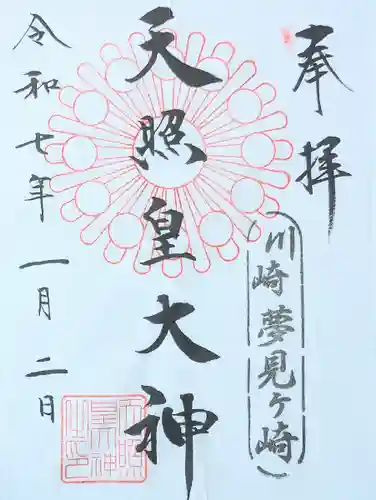 奉拝
(川崎夢見ヶ崎)
天照皇大神
令和七年一月二日